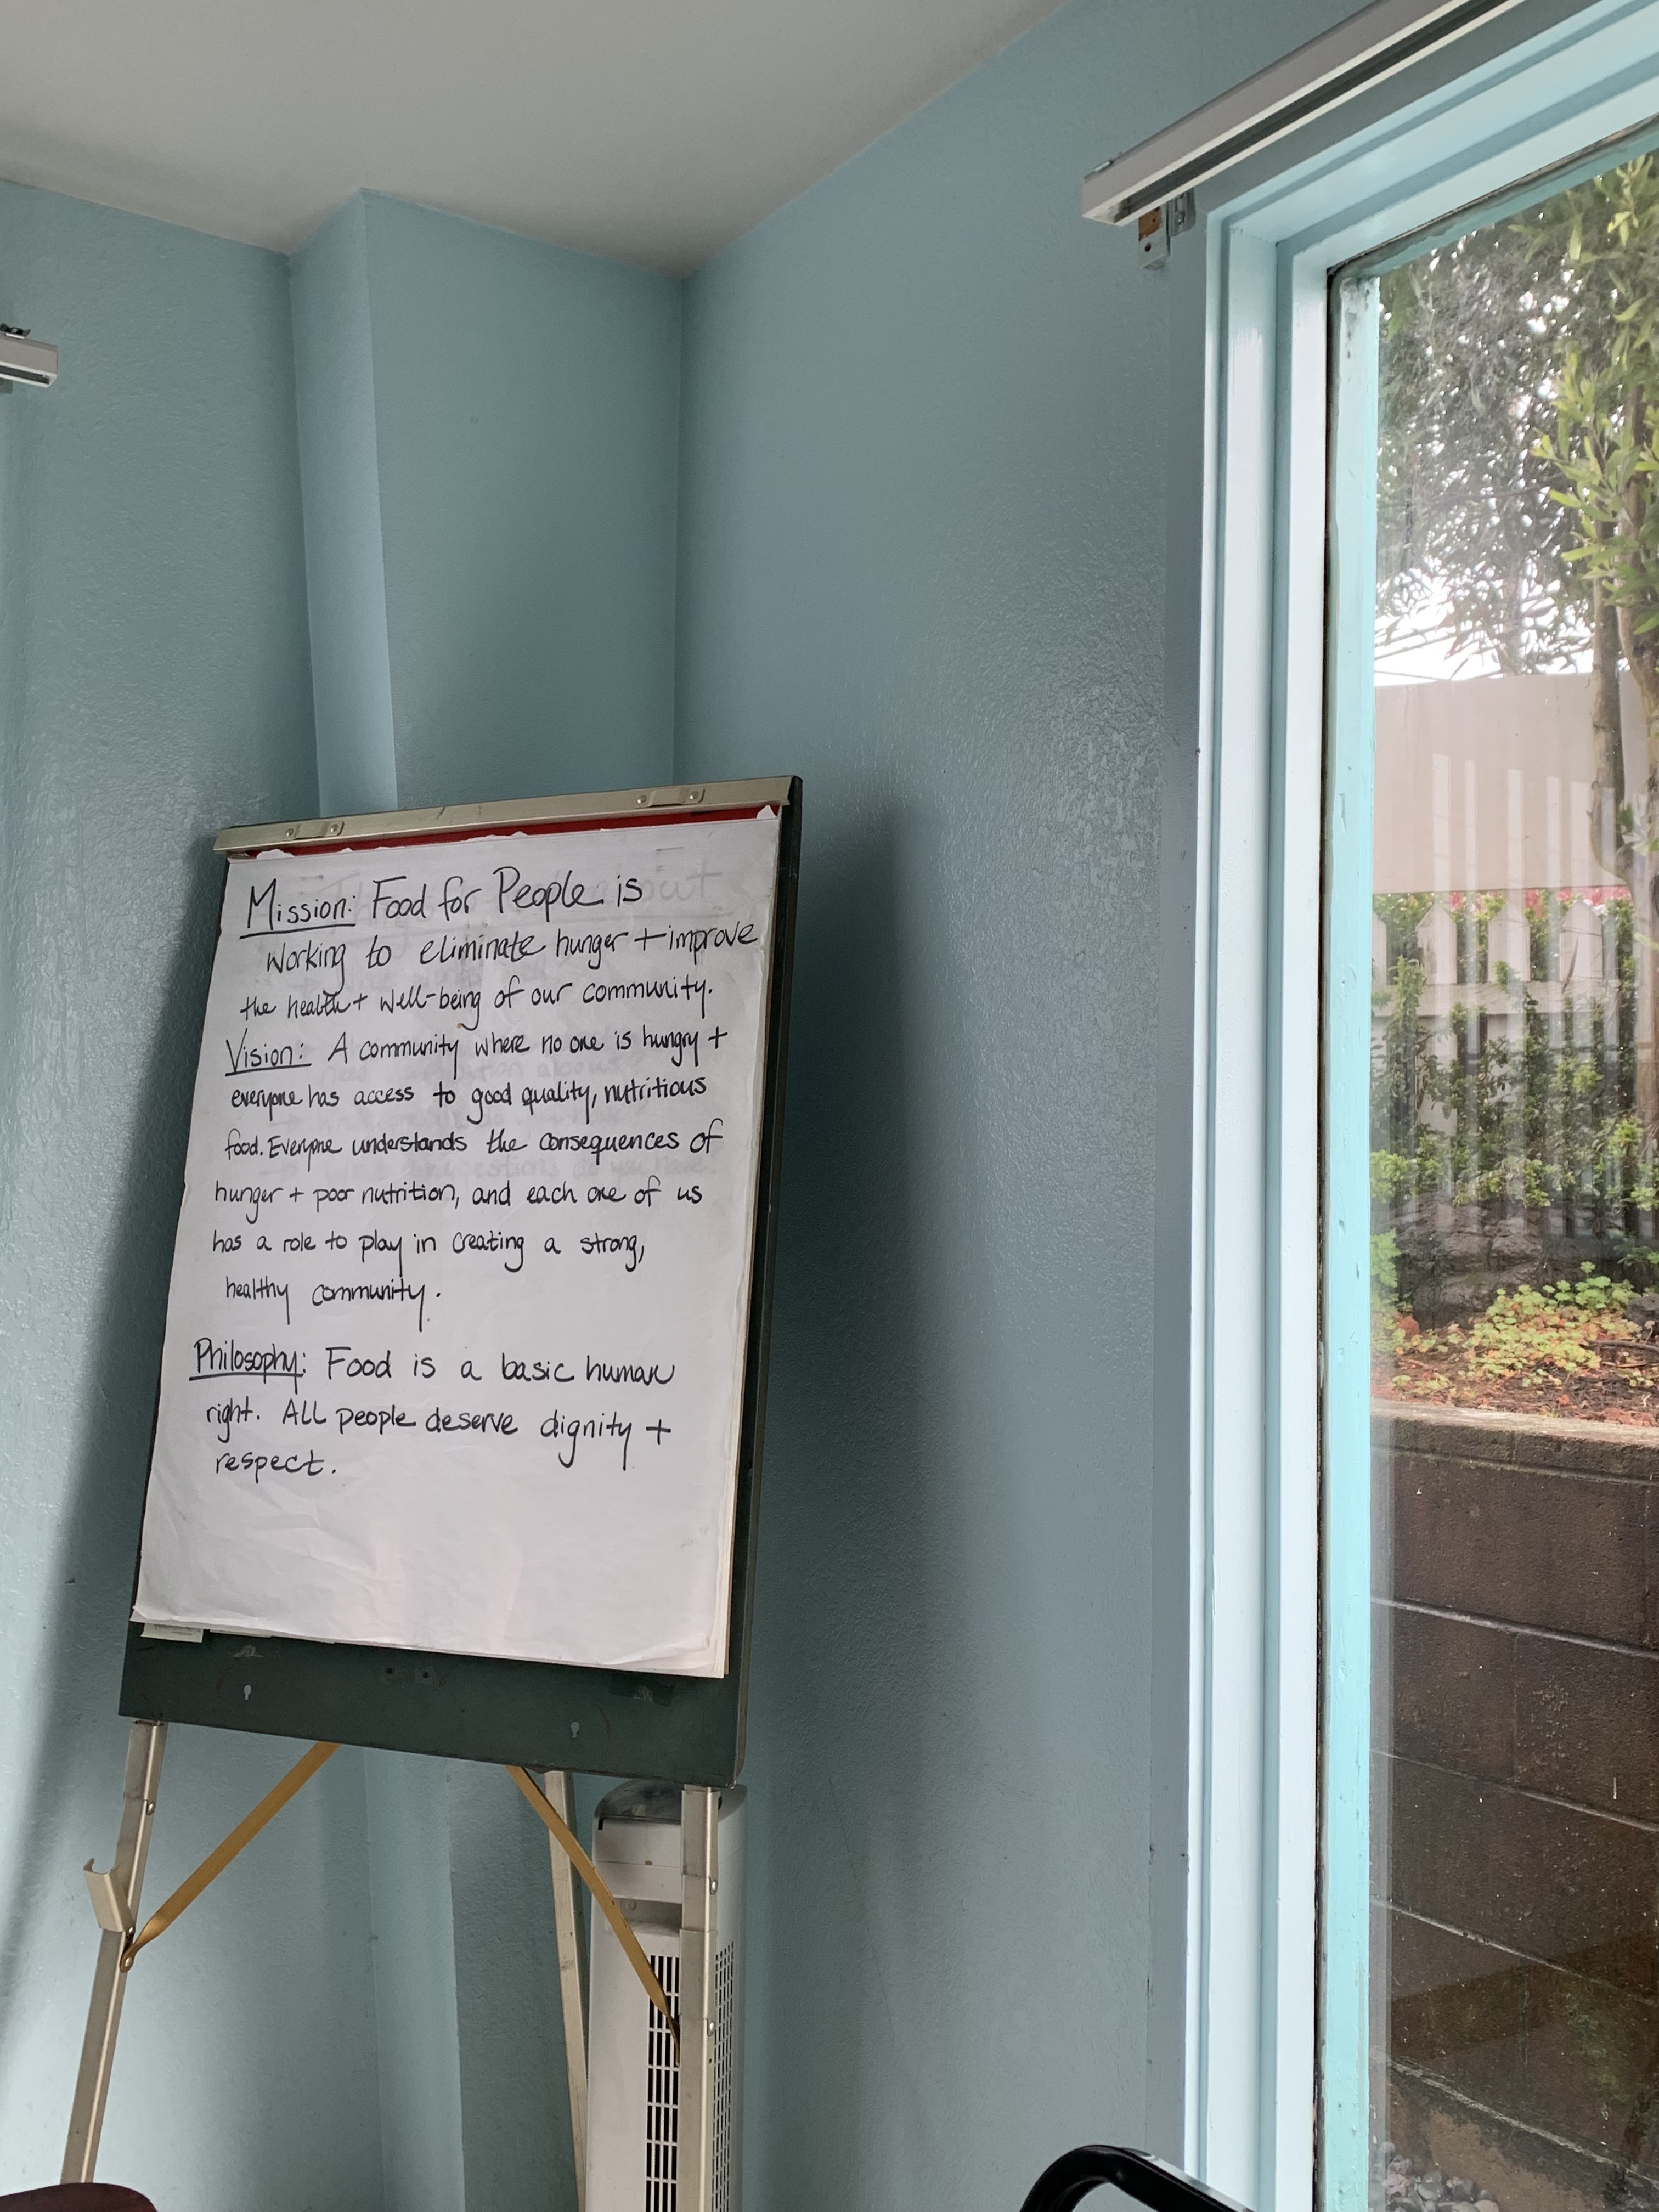 Mission: Food for People is
working to eliminate hunger + improve
the health + well-being of our community.
Vision: A community where no one is hungry +
everyone has access to good quality, nutritious
food. Everyone understands the consequences of
hunger + poor nutrition, and each one of us
has a role to play in creating a strong,
healthy community.
Philosophy: Food is a basic human
right. All people deserve dignity +
respect.